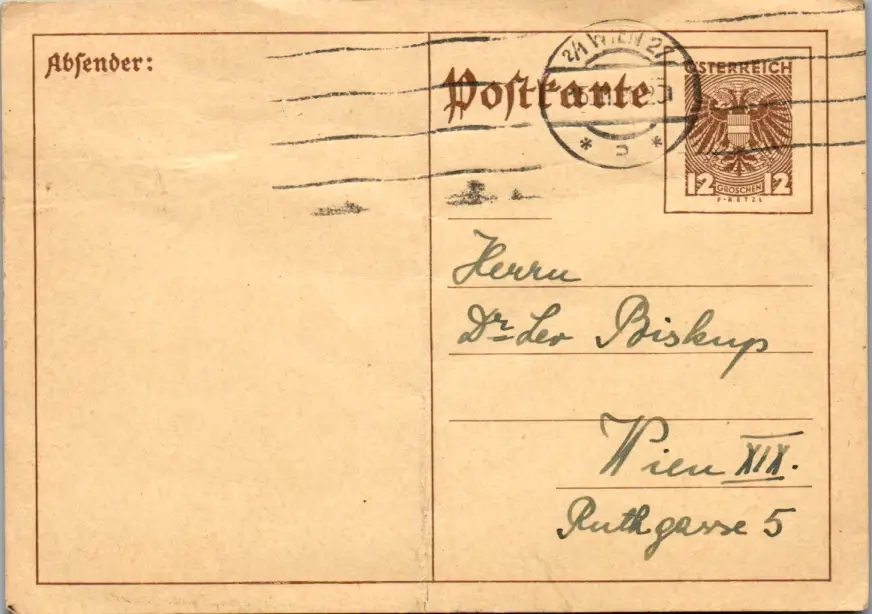 Absender:
Postkarte
2/1 WIEN 27
ÖSTERREICH
12 GROSCHEN 12
Herrn
Dr. Leo Biskup
Wien XIX.
Ruthgasse 5